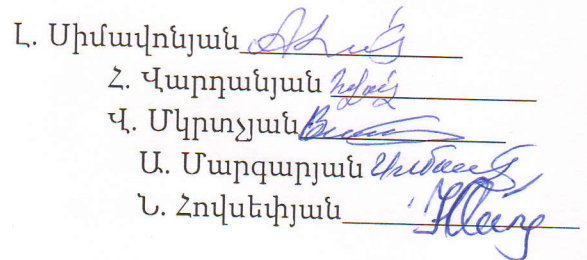 Լ. Սիմավոնյան
Հ. Վարդանյան
Վ. Մկրտչյան
Ա. Մարգարյան
Ն. Հովսեփյան